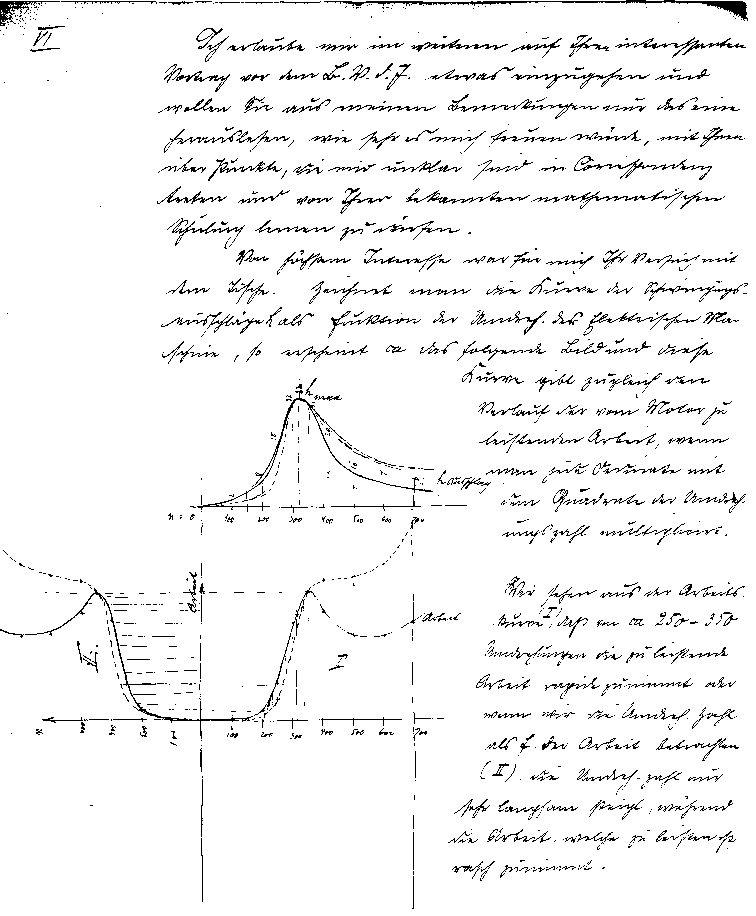 VI
Ich erlaube mir im weiteren auf Ihren interessanten
Vortrag vor dem B. V. d. I. etwas einzugehen und
wollen Sie aus meinen Bemerkungen nur das eine
herauslesen, wie sehr es mich freuen würde, mit Ihnen
über Punkte, die mir unklar sind in Correspondenz
treten und von Ihrer bekannten mathematischen
Schulung lernen zu dürfen.
Von höchstem Interesse war für mich Ihr Versuch mit
dem Tische. Zeichnet man die Kurve der Schwingungs-
ausschläge h als Funktion der Umdreh. des Elektrischen Ma-
schine, so erscheint ca das folgende Bild und diese
Kurve gibt zugleich den
Verlauf der vom Motor zu
leistenden Arbeit, wenn
man jede Ordinate mit
dem Quadrate der Umdreh-
ungszahl multipliziert.
h max
h Ausschlag
n = 0 100 200 300 400 500 600 700
Wir sehen aus der Arbeits
kurve I, daß von ca 250 - 350
Umdrehungen die zu leistende
Arbeit rapide zunimmt oder
wenn wir die Umdreh. zahl
als f. der Arbeit betrachten
(II) die Umdreh.zahl nur
sehr langsam steigt, während
die Arbeit welche zu leisten ist
rasch zunimmt.
Arbeit
Arbeit
II.
I
100 200 300 400 500 600 700